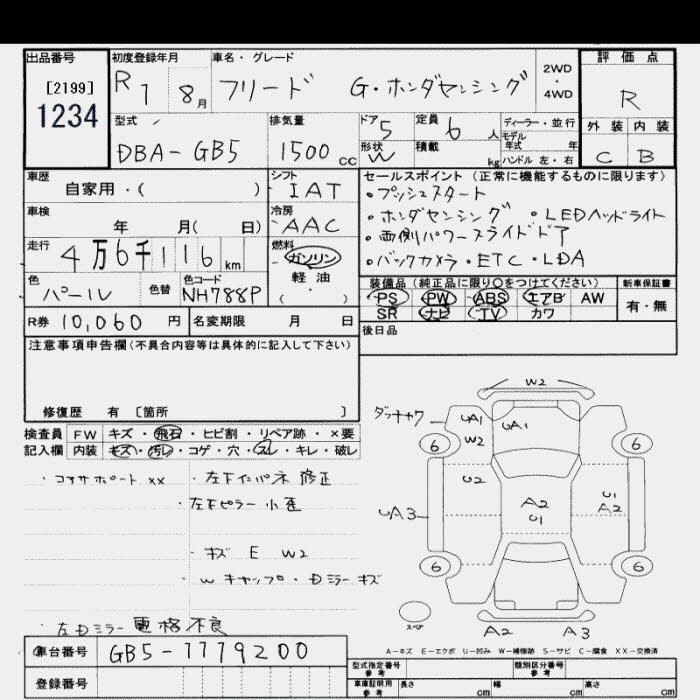 出品番号 初度登録年月 車名・グレード 評価点
[2199] R1 8月 フリード G・ホンダセンシング 2WD・4WD R
1234
型式 排気量 ドア 5 定員 6人 ディーラー・並行 外装 内装
DBA-GB5 1500cc 形状 W 積載 kg モデル年式 年 ハンドル 左・右 C B
車歴 シフト セールスポイント (正常に機能するものに限ります)
自家用・( ) IAT ・プッシュスタート
車検 冷房 ・ホンダセンシング ・LEDヘッドライト
年 月( 日) AAC ・両側パワースライドドア
走行 燃料 ・バックカメラ・ETC・LDA
4万6千116km ガソリン
色 色替 色コード 軽油 装備品 (純正品に限り○をつけてください) 新車保証書
パール NH788P ・( ) PS PW ABS エアB AW 有・無
SR ナビ TV カワ
R券 10,060円 名変期限 月 日 後日品
注意事項申告欄(不具合内容等は具体的に記入して下さい)
修復歴 有 [箇所 ]
検査員 FW キズ・飛石・ヒビ割・リペア跡・×要
記入欄 内装 キズ・汚レ・コゲ・穴・スレ・キレ・破レ
・コアサポート XX ・左下インパネ 修正
・左下ピラー 小歪
・キズ E W2
・Wキャップ・Dミラーキズ
・左Dミラー 電格不良
車台番号 GB5-1179200
登録番号
W2
UA1 UA1
W2
6 6
U2
A2
U1
U1
A2
UA3
6 6
スペア
A2 A3
A-キズ E-エクボ U-凹み W-補修跡 S-サビ C-腐食 XX-交換済
型式指定番号 参考 類別区分番号 参考
車庫証明用 参考 長さ cm 幅 cm 高さ cm